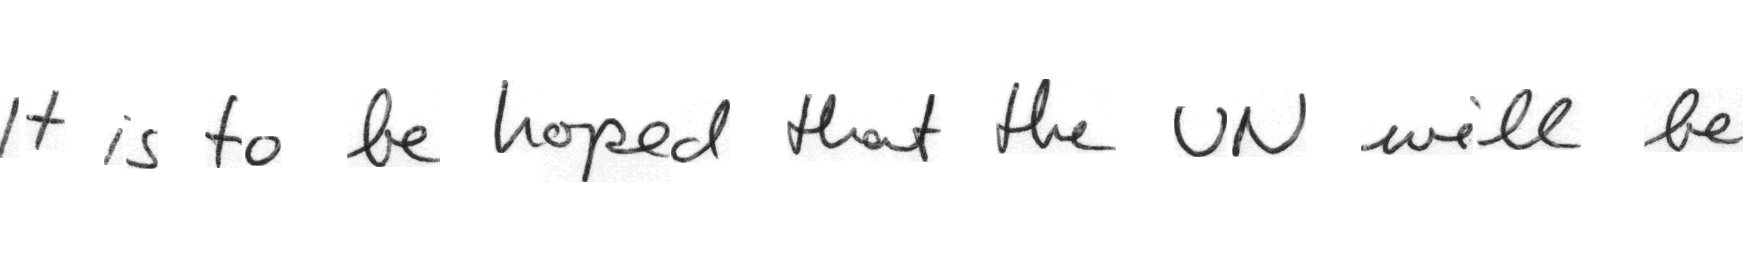 It is to be hoped that the UN will be